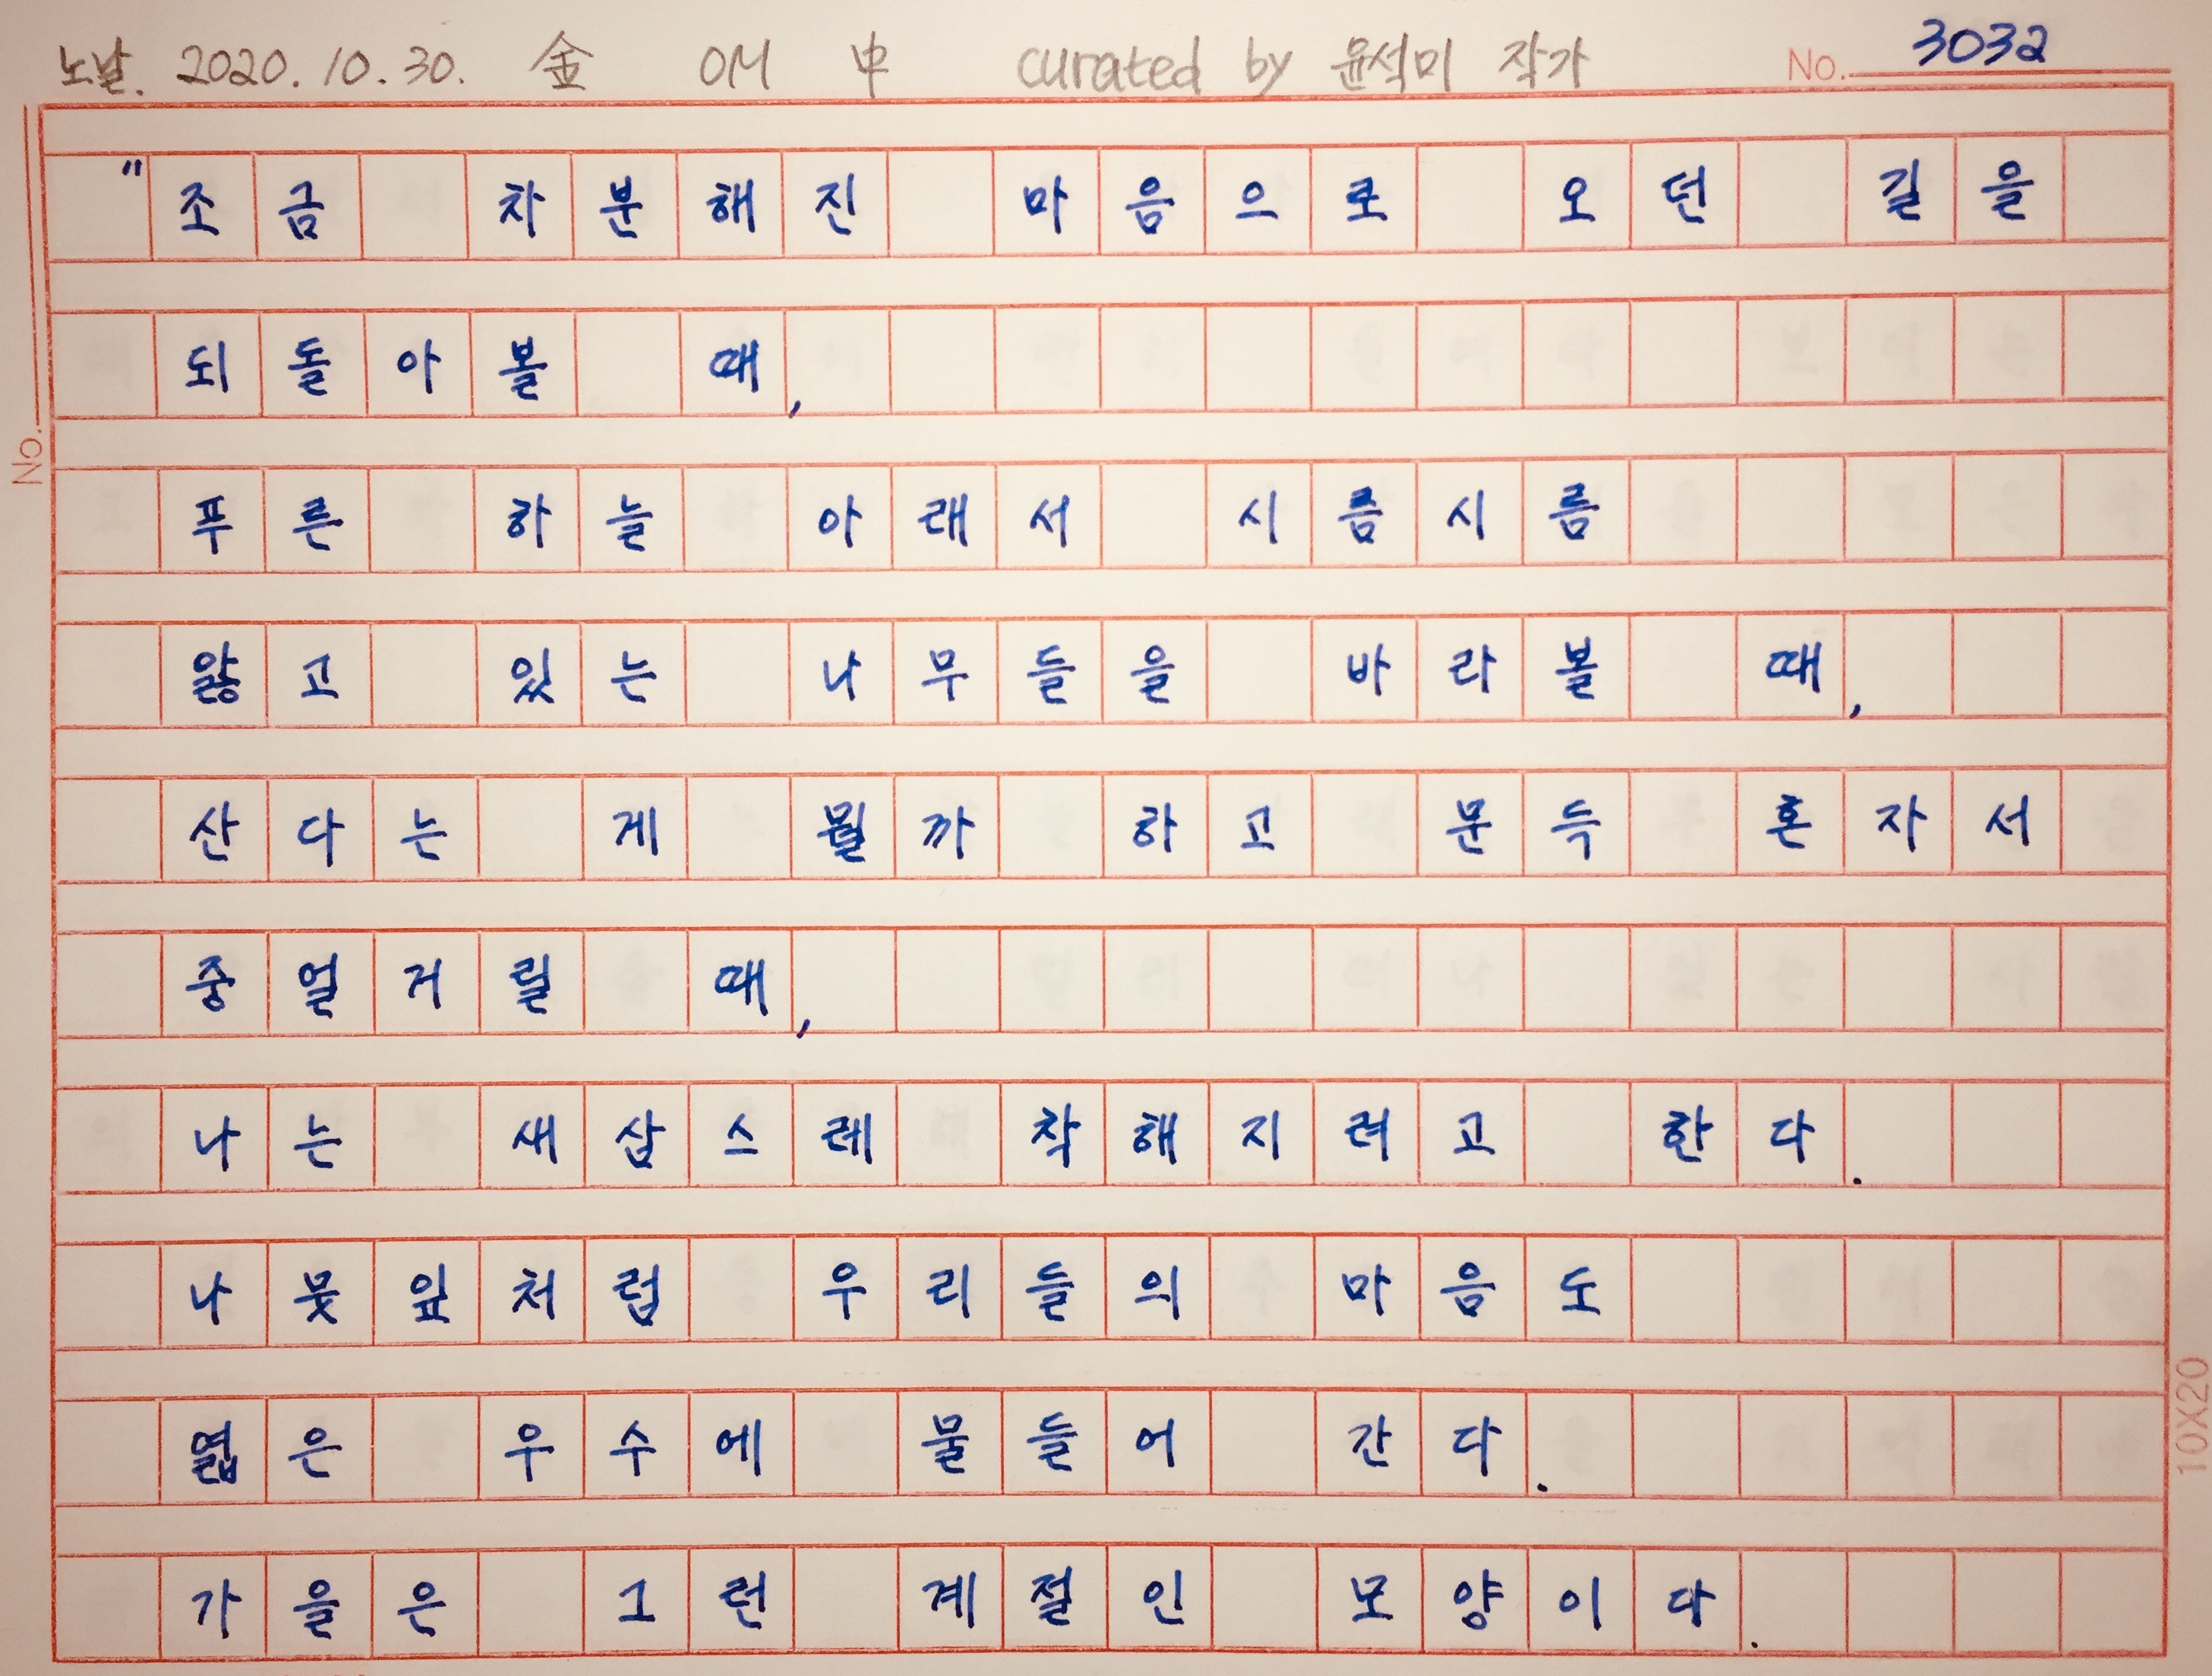 노날. 2020. 10. 30. 金 OM 中 curated by 윤석미 작가 No. 3032
"조금 차분해진 마음으로 오던 길을
되돌아볼 때,
푸른 하늘 아래서 시름시름
앓고 있는 나무들을 바라볼 때,
산다는 게 뭘까 하고 문득 혼자서
중얼거릴 때,
나는 새삼스레 착해지려고 한다.
나뭇잎처럼 우리들의 마음도
엷은 우수에 물들어 간다.
가을은 그런 계절인 모양이다.
No.
10X20